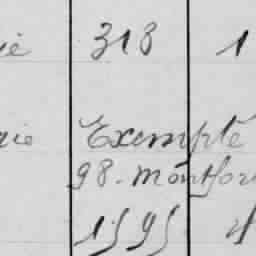 318 1
Exempté
98. Montfor
1595 4